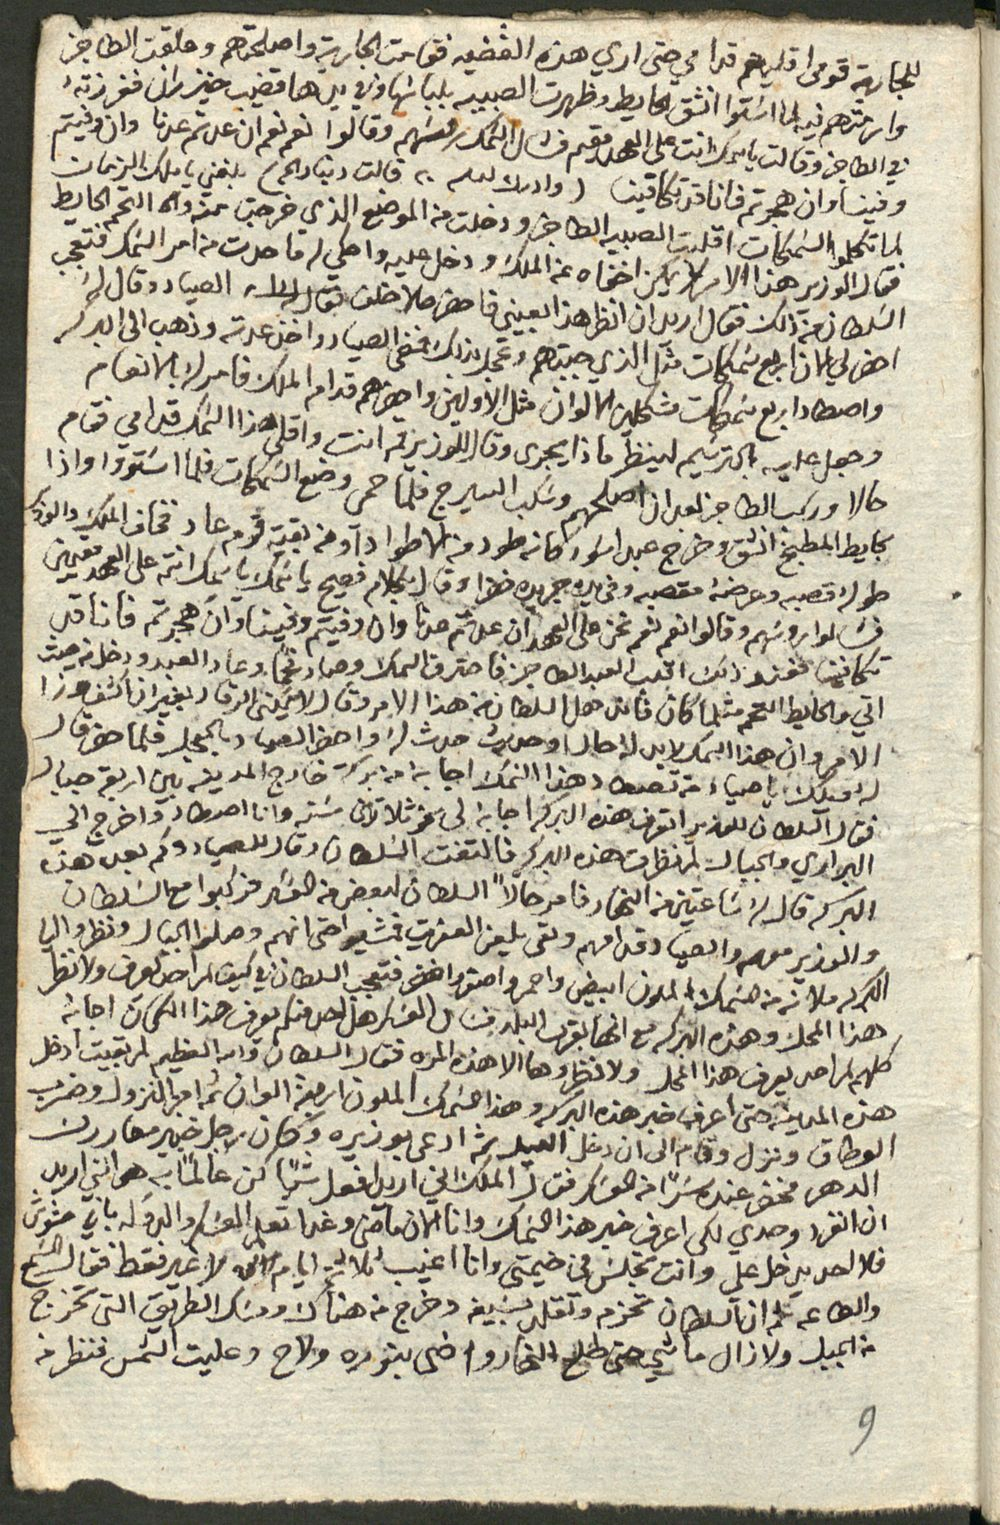 للجارية قومى اقليهم قدامي حتى اري هذه القضيه فقامت الجارية واصلحتهم وعلقت الطاجن
وارمتهم فيه لما استووا انشق الحايط وظهرت الصبيه بلباسها وفي يدها قضيب خيزران فغرزته
في الطاجن وقالت يا سمك انت على العهد مقيم فشال السمك روسهم وقالوا نعم نعم ان عدتم عدنا وان وفيتم
وفينا وان هجرتم فانا قد تكافينا وادرك قالت دينارزاد بلغني يا ملك الزمان
لما تكلموا السمكات اقلبت الصبيه الطاجن ودخلت من الموضع الذي خرجت منه والتحم الحايط
فقال الوزير هذا الامر لا يمكن اخفاه عن الملك ودخل عليه واحكي له ما حدث من امر السمك فتعجب
السلطان من ذلك فقال اريد ان انظر هذا بعيني فاحضر الصياد وقال له
احضر لي الان اربع سمكات مثل الذي جبتهم وعجل بذلك فمضى الصياد واخذ عدته وذهب الى البركه
واصطاد اربع سمكات مشكلين الالوان مثل الأولين واحضرهم قدام الملك فامر له بالانعام
وجعل عليه بالترسيم لينظر ماذا يجرى وقال للوزير قم انت واقلي هذا السمك قدامي فقام
حالا وركب الطاجن بعد ان اصلحهم وسكب السيرج فلما حمى وضع السمكات فلما استووا واذا
بحايط المطبخ انشق وخرج عبد اسود كانه طود من الاطواد او من بقية قوم عاد فخاف الملك والوزير
طوله قصبه وعرضه مقصبه وفي يده جريده خضرا وقال بكلام فصيح يا سمك يا سمك انتم على العهد مقيمين
فشالوا روسهم وقالوا نعم نعم نحن على العهد ان عدتم عدنا وان وفيتم وفينا وان هجرتم فانا قد
تكافينا فعند ذلك اقلب العبد الطاجن فاحترق السمك وصار فحمًا وعاد العبد ودخل من حيث
اتي والحايط التحم مثلما كان فاندهل السلطان من هذا الامر وقال لا يمكنني الرقاد بغير ان اكشف هذا
الامر وان هذا السمك لابد له حال او حديث حدث له واحضر الصياد بالعجل فلما حضر قال
له ويلك يا صياد من اين تصطاد هذا السمك اجابه من بركة خارج المدينه بين اربعة جبال
فقال السلطان للوزير اتعرف هذه البركه اجابه لي نحو ثلاثين سنه وانا اصطاد واخرج الى
البراري والجبال لم نظرت هذه البركه فالتفت السلطان وقال للصياد وكم بعد هذه
البركه قال له ساعتين من النهار فامر حالاً السلطان لبعض من العسكر فركبوا مع السلطان
والوزير معهم والصياد قدامهم وبقى يلعن العفريت فمشيوا حتى انهم وصلوا الجبال ونظروا الى
البركه ملانه من السمك الملون ابيض واحمر واصفر واخضر فتعجب السلطان في كيف لم احد تعرف ولا نظر
هذا المحل وهذه البركه مع انها بقرب البلد فسال العسكر هل احد منكم يعرف هذا المكان اجابه
كلهم لم احد يعرف هذا المحل ولا نظروها الا هذه المره فقال السلطان والله العظيم لم بقيت ادخل
هذه المدينه حتى اعرف خبر هذه البركه وهذا السمك الملون اربعة الوان ثم امر بالنزول وضرب
الوطاق ونزل وقام الى ان دخل الليل ثم ادعى بوزيره وكان رجل خبير معاررك
الدهر فحضر عنده سرًا من العسكر فقال الملك اني اريد افعل شيًا كن عالمًا به هو انني اريد
ان انفرد وحدي لكي اعرف خبر هذا السمك وانا الان ماضى وغدا تعلم العسكر والدوله باني متشوش
فلا احد يدخل علي وانت تجلس في خيمتي وانا اغيب ثلاثة ايام لا غير فقط فقال السمع
والطاعه ثم ان السلطان تحزم وتقلد بسيفه وخرج من هناك ومسك الطريق التي تخرج
من الجبل ولازال ماشي حتى طلع النهار واضى بنوره ولاح وعليت الشمس فنظر من
9